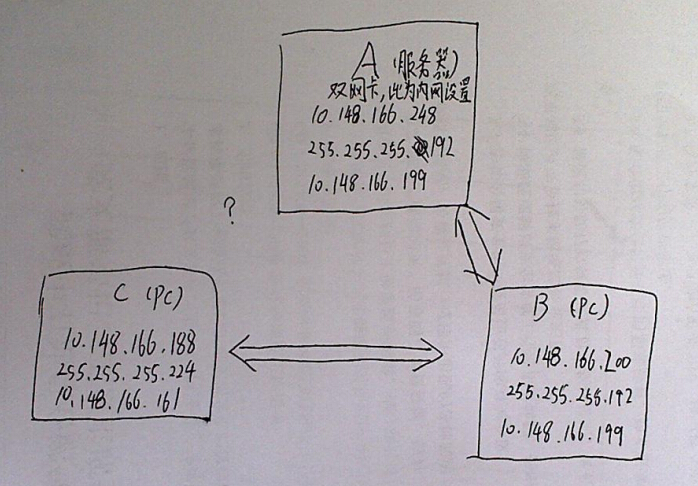 A (服务器)
双网卡,此为内网设置
10.148.166.248
255.255.255.192
10.148.166.199
?
C (PC)
10.148.166.188
255.255.255.224
10.148.166.161
B (PC)
10.148.166.200
255.255.255.192
10.148.166.199